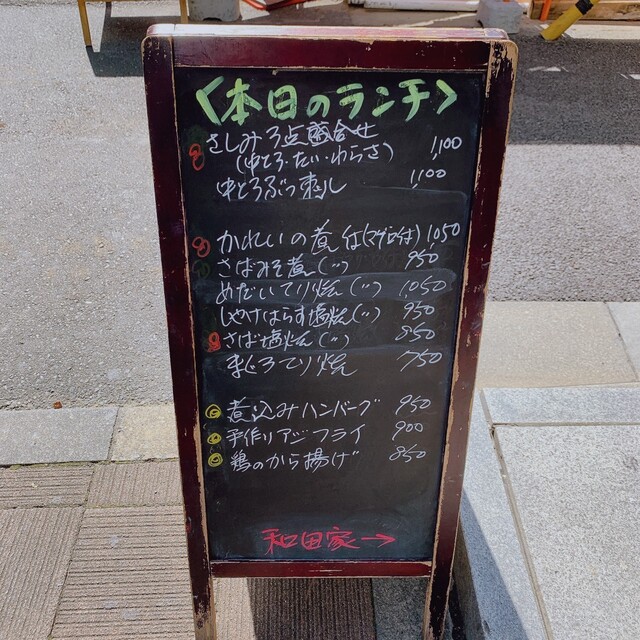 <本日のランチ>
さしみ3点盛合せ 1,100
(中とろ・たい・わらさ)
中とろぶつ刺し 1,100
かれいの煮付(マグロ付) 1,050
さばみそ煮(〃) 950
めだいてり焼(〃) 1,050
しゃけはらす塩焼(〃) 950
さば塩焼(〃) 850
まぐろてり焼 750
煮込みハンバーグ 950
手作りアジフライ 900
鶏のから揚げ 850
和田家→